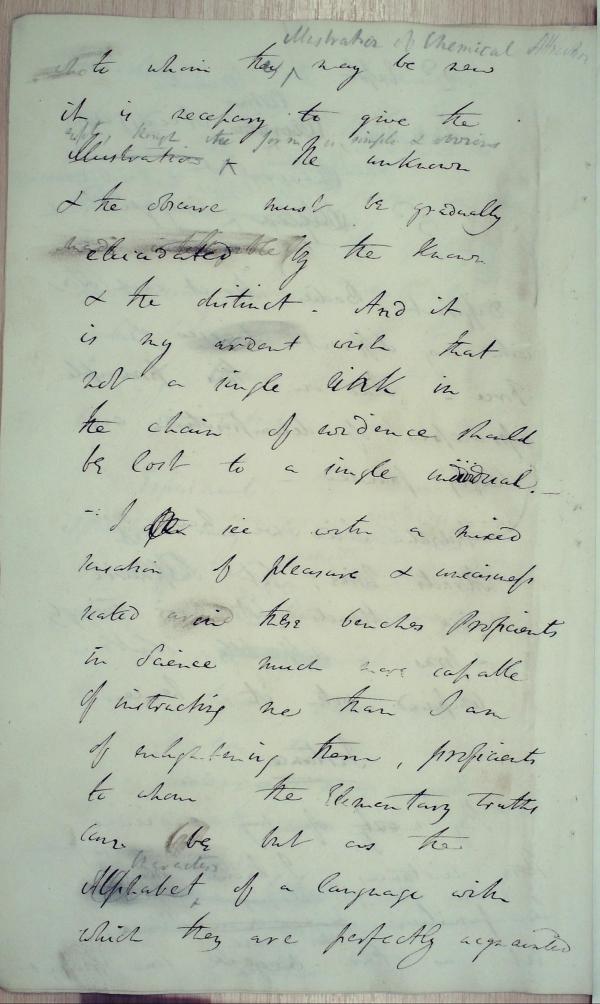 Illustration of Chemical Attraction
to whom they may be new
it is necessary to give the
even though the form is simple & obvious
illustration The unknown
& the obscure must be gradually
elucidated by the known
& the distinct. And it
is my ardent wish that
not a single link in
the chain of evidence should
be lost to a single individual. —
-: I see with a mixed
sensation of pleasure & uneasiness
seated in these benches Proficients
in Science much more capable
of instructing me than I am
of enlightening them, proficients
to whom the Elementary truths
can be but as the
characters
Alphabet of a language with
which they are perfectly acquainted